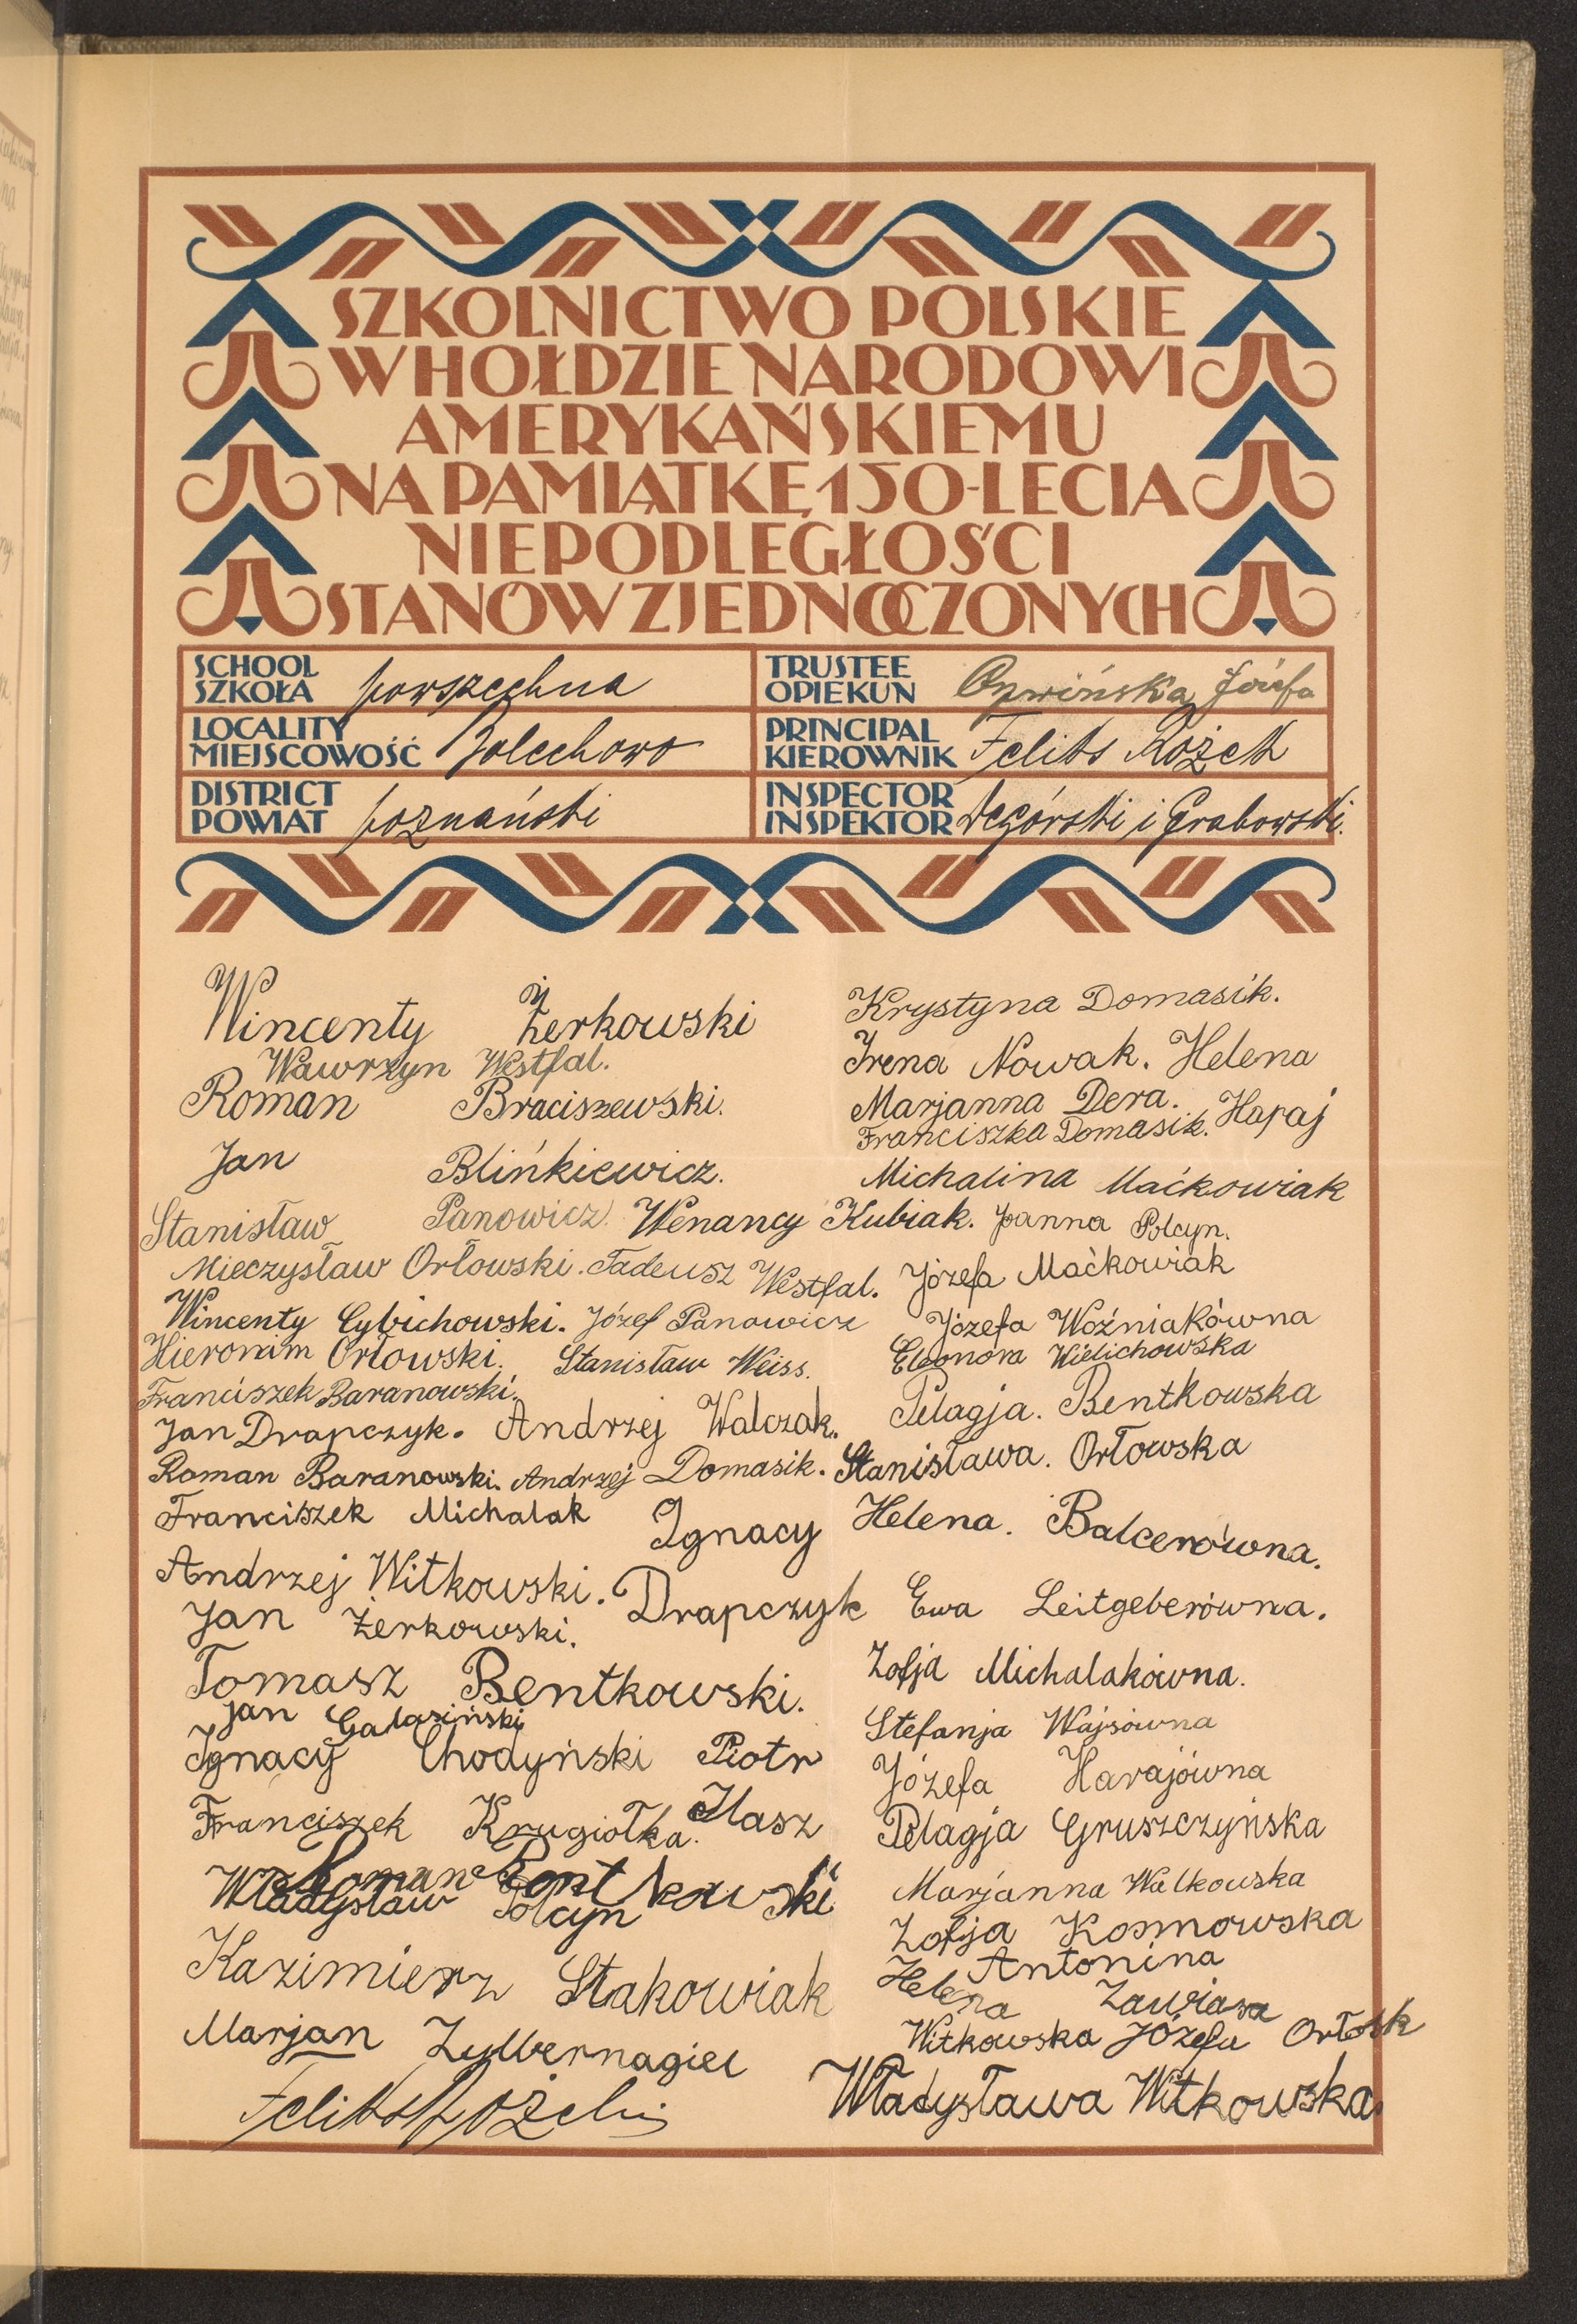 SZKOLNICTWO POLSKIE
W HOŁDZIE NARODOWI
AMERYKAŃSKIEMU
NA PAMIĄTKĘ 150-LECIA
NIEPODLEGŁOŚCI
STANÓW ZJEDNOCZONYCH
SCHOOL
SZKOŁA powszechna
TRUSTEE
OPIEKUN Józefa
LOCALITY
MIEJSCOWOŚĆ Bolechowo
PRINCIPAL
KIEROWNIK Feliks Rożek
DISTRICT
POWIAT poznański
INSPECTOR
INSPEKTOR i Grabowski.
Wincenty Żerkowski
Wawrzyn Westfal.
Roman Braciszewski.
Jan Blińkiewicz.
Stanisław Panowicz. Wenancy Kubiak. Joanna Polcyn.
Mieczysław Orłowski. Tadeusz Westfal.
Wincenty Cybichowski. Józef Panowicz
Hieronim Orłowski. Stanisław Weiss.
Franciszek Baranowski.
Jan Drapczyk. Andrzej Walczak.
Roman Baranowski. Andrzej Domasik.
Franciszek Michalak Ignacy
Andrzej Witkowski. Drapczyk
Jan Żerkowski.
Tomasz Bentkowski.
Jan Galasiński
Ignacy Chodyński Piotr
Franciszek Krugiołka. Ilasz
Roman Bentkowski
Władysław Polcyn
Kazimierz Stakowiak
Marjan Zylbernagiel
Krystyna Domasik.
Irena Nowak. Helena
Marjanna Dera. Hapaj
Franciszka Domasik.
Michalina Maćkowiak
Józefa Maćkowiak
Józefa Woźniakówna
Eleonora Wielichowska
Pelagja. Bentkowska
Stanisława. Orłowska
Helena. Balcerówna.
Ewa Leitgeberówna.
Zofja Michalakówna.
Stefanja Wajsówna
Józefa Harajówna
Pelagja Gruszczyńska
Marjanna Walkowska
Zofja Kosmowska
Helena Antonina
Zawiasa
Witkowska Józefa Orłosk
Władysława Witkowska.